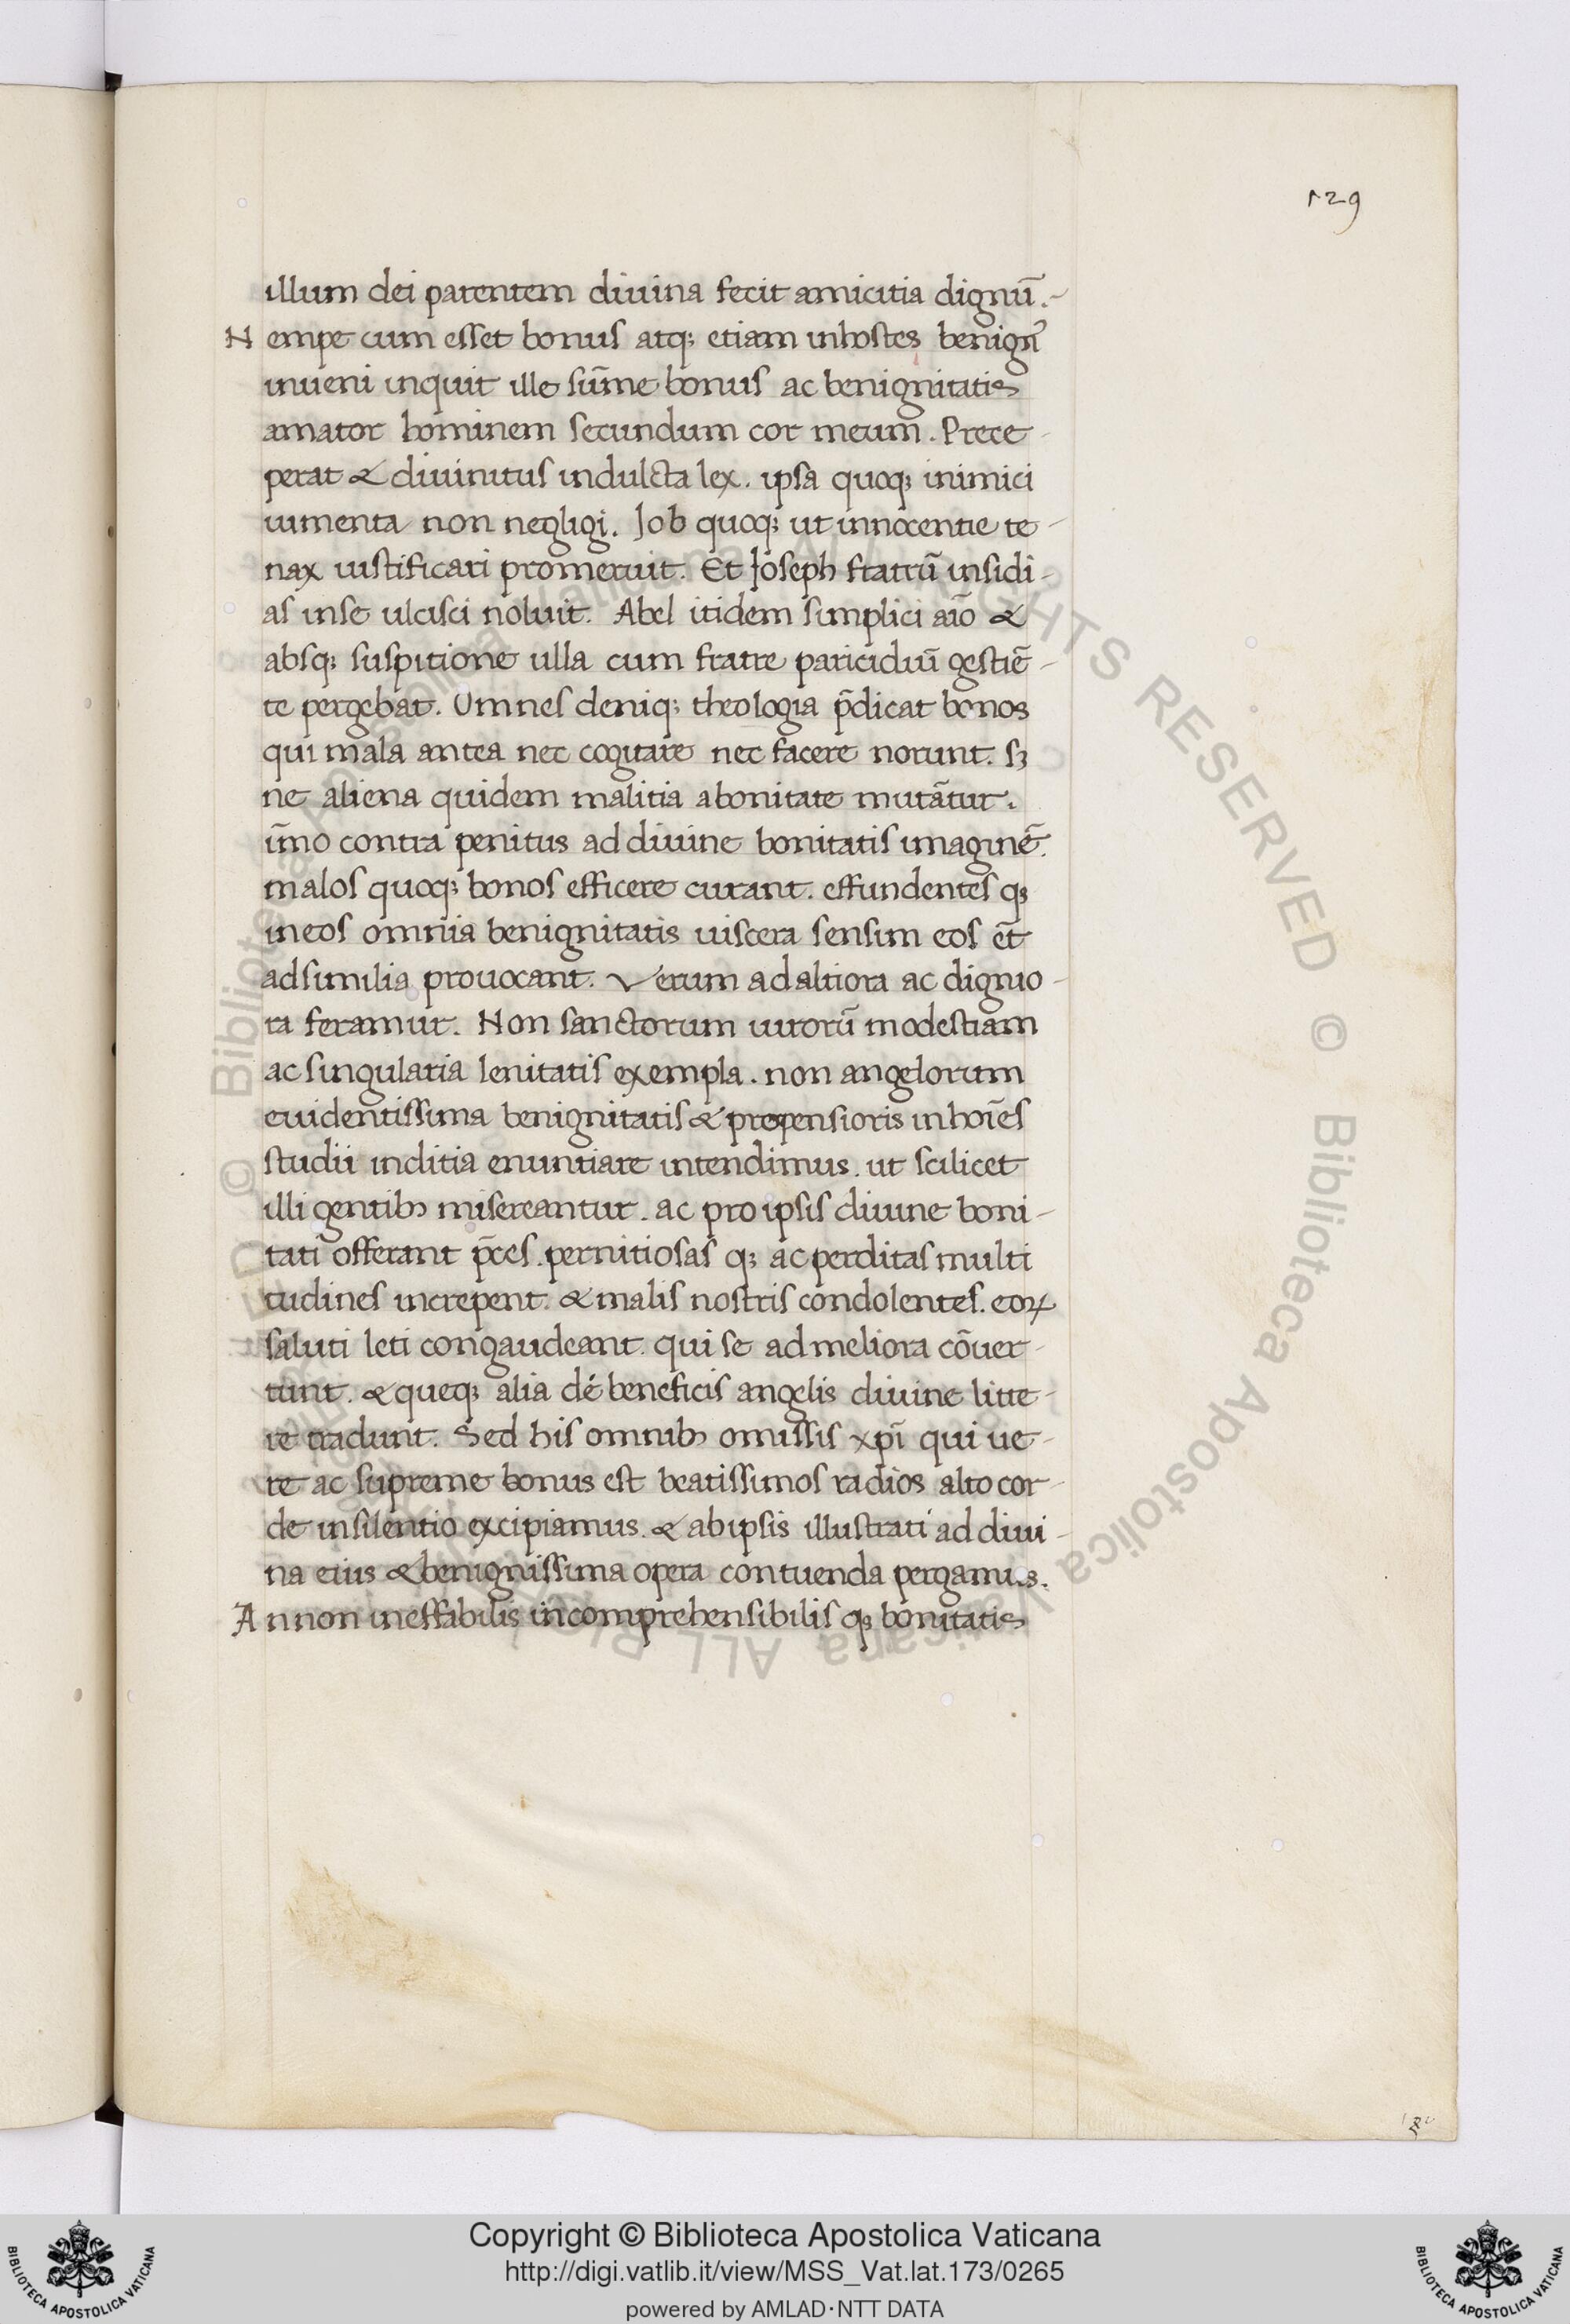 129
illum dei parentem diuina fecit amicitia dignū.-
Nempe cum esset bonus atq; etiam inhostes benignꝰ
inueni inquit ille sūme bonus ac benignitatis
amator hominem secundum cor meum. Prece-
perat & diuinitus indulcta lex. ipsa quoq; inimici
iumenta non negligi. Job quoq; ut innocentie te-
nax iustificari promeruit. Et Joseph fratrū insidi-
as inse ulcisci noluit. Abel itidem simplici aīo &
absq; suspitione ulla cum fratre paricidiū gestiē-
te pergebat. Omnes deniq; theologia p̄dicat bonos
qui mala antea nec cogitare nec facere norunt. sꝫ
ne aliena quidem malitia abonitate mutātur.
īmo contra penitus ad diuine bonitatis imaginē.
malos quoq; bonos efficere curant. effundentes q;
ineos omnia benignitatis uiscera sensim eos et̄
adsimilia prouocant. Verum ad altiora ac dignio-
ra feramur. Non sanctorum uirorū modestiam
ac singularia lenitatis exempla. non angelorum
euidentissima benignitatis & propensioris in hoīes
studii inditia enuntiare intendimus. ut scilicet
illi gentibꝫ misereantur. ac pro ipsis diuine boni-
tati offerant p̄ces. pernitiosas q; ac perditas multi
tudines increpent. & malis nostris condolentes. eoꝝ
saluti leti congaudeant. qui se ad meliora cōuer-
tunt. & queq; alia de beneficis angelis diuine litte-
re tradunt. Sed his omnibꝫ omissis xpī qui ue-
re ac supreme bonus est beatissimos radios alto cor-
de insilentio excipiamus. & ab ipsis illustrati ad diui-
na eius & benignissima opera contuenda pergamus.
Annon ineffabilis incomprehensibilis q; bonitatis
© Biblioteca Apostolica Vaticana ALL RIGHTS RESERVED © Biblioteca Apostolica Vaticana ALL RIGHTS RESERVED
Copyright © Biblioteca Apostolica Vaticana
http://digi.vatlib.it/view/MSS_Vat.lat.173/0265
powered by AMLAD·NTT DATA
BIBLIOTECA APOSTOLICA VATICANA
BIBLIOTECA APOSTOLICA VATICANA